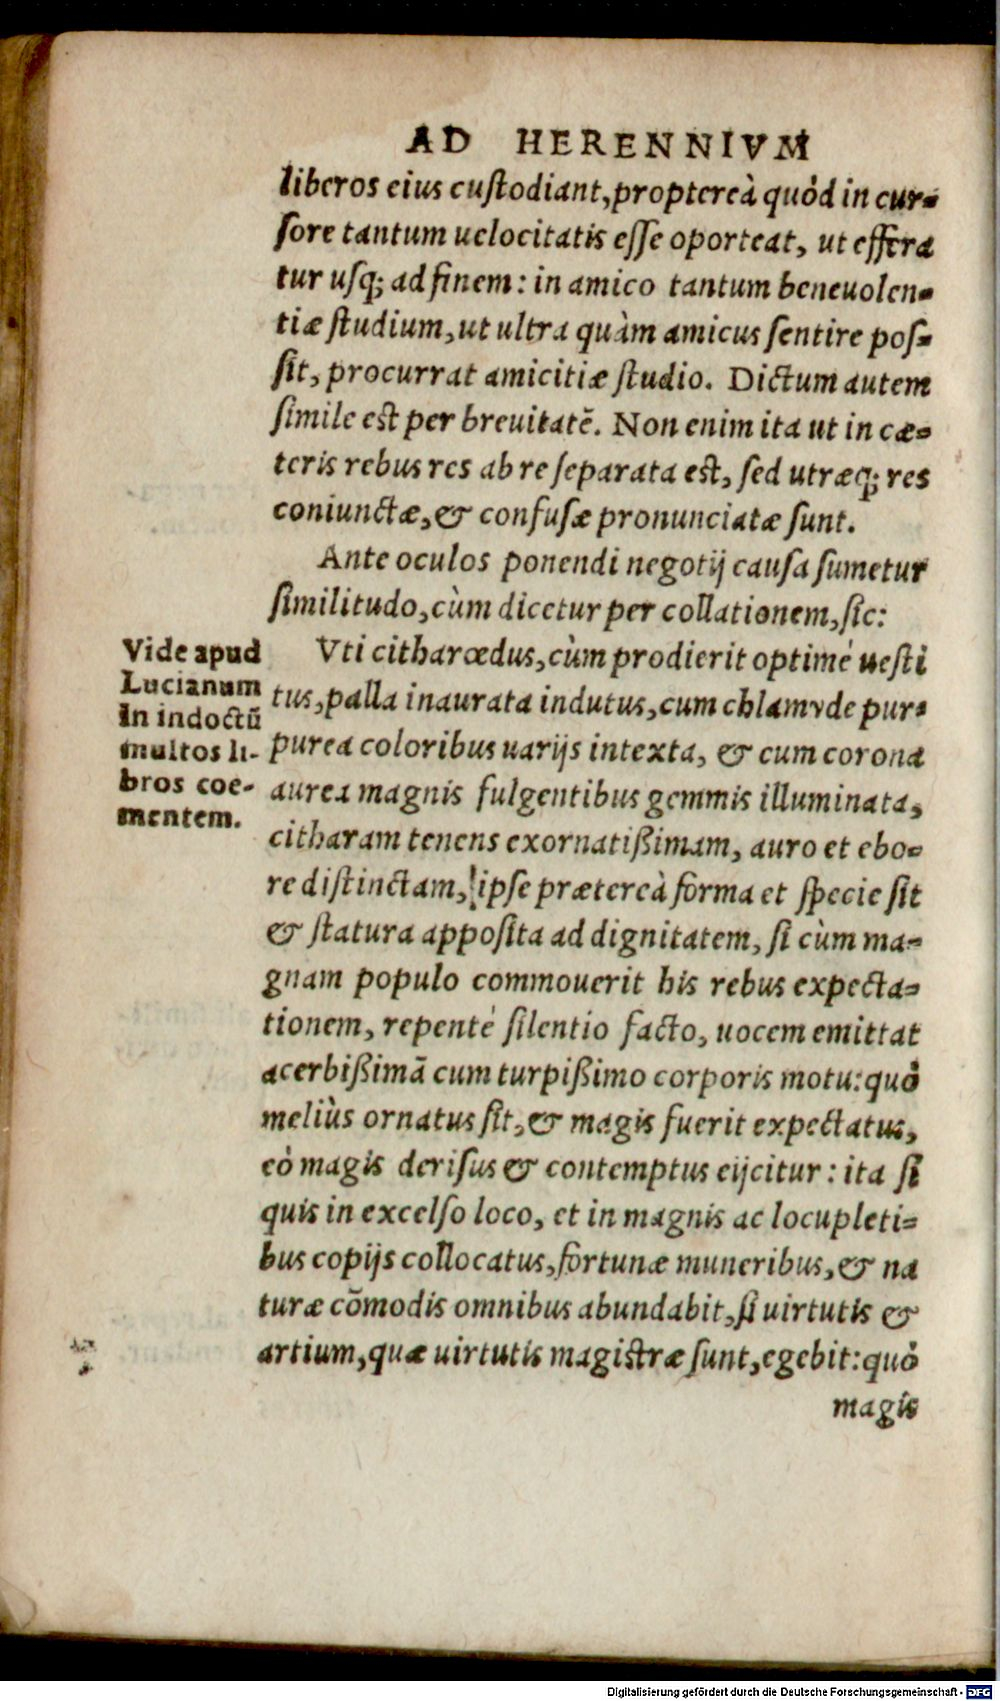 AD HERENNIVM
liberos eius custodiant, proptereà quòd in cur-
sore tantum uelocitatis esse oporteat, ut effera
tur usq; ad finem: in amico tantum beneuolen-
tiæ studium, ut ultra quàm amicus sentire pos-
sit, procurrat amicitiæ studio. Dictum autem
simile est per breuitatē. Non enim ita ut in cæ-
teris rebus res ab re separata est, sed utræq; res
coniunctæ, & confusæ pronunciatæ sunt.
Ante oculos ponendi negotij causa sumetur
similitudo, cùm dicetur per collationem, sic:
Vti citharœdus, cùm prodierit optimè uesti
tus, palla inaurata indutus, cum chlamyde pur-
purea coloribus uarijs intexta, & cum corona
aurea magnis fulgentibus gemmis illuminata,
citharam tenens exornatißimam, auro et ebo-
re distinctam, ipse prætereà forma et specie sit
& statura apposita ad dignitatem, si cùm ma-
gnam populo commouerit his rebus expecta-
tionem, repentè silentio facto, uocem emittat
acerbißimā cum turpißimo corporis motu: quò
meliùs ornatus sit, & magis fuerit expectatus,
eò magis derisus & contemptus eijcitur: ita si
quis in excelso loco, et in magnis ac locupleti-
bus copijs collocatus, fortunæ muneribus, & na
turæ cōmodis omnibus abundabit, si uirtutis &
artium, quæ uirtutis magistræ sunt, egebit: quò
magis
Vide apud
Lucianum
in indoctū
multos li-
bros coe-
mentem.
Digitalisierung gefördert durch die Deutsche Forschungsgemeinschaft - DFG